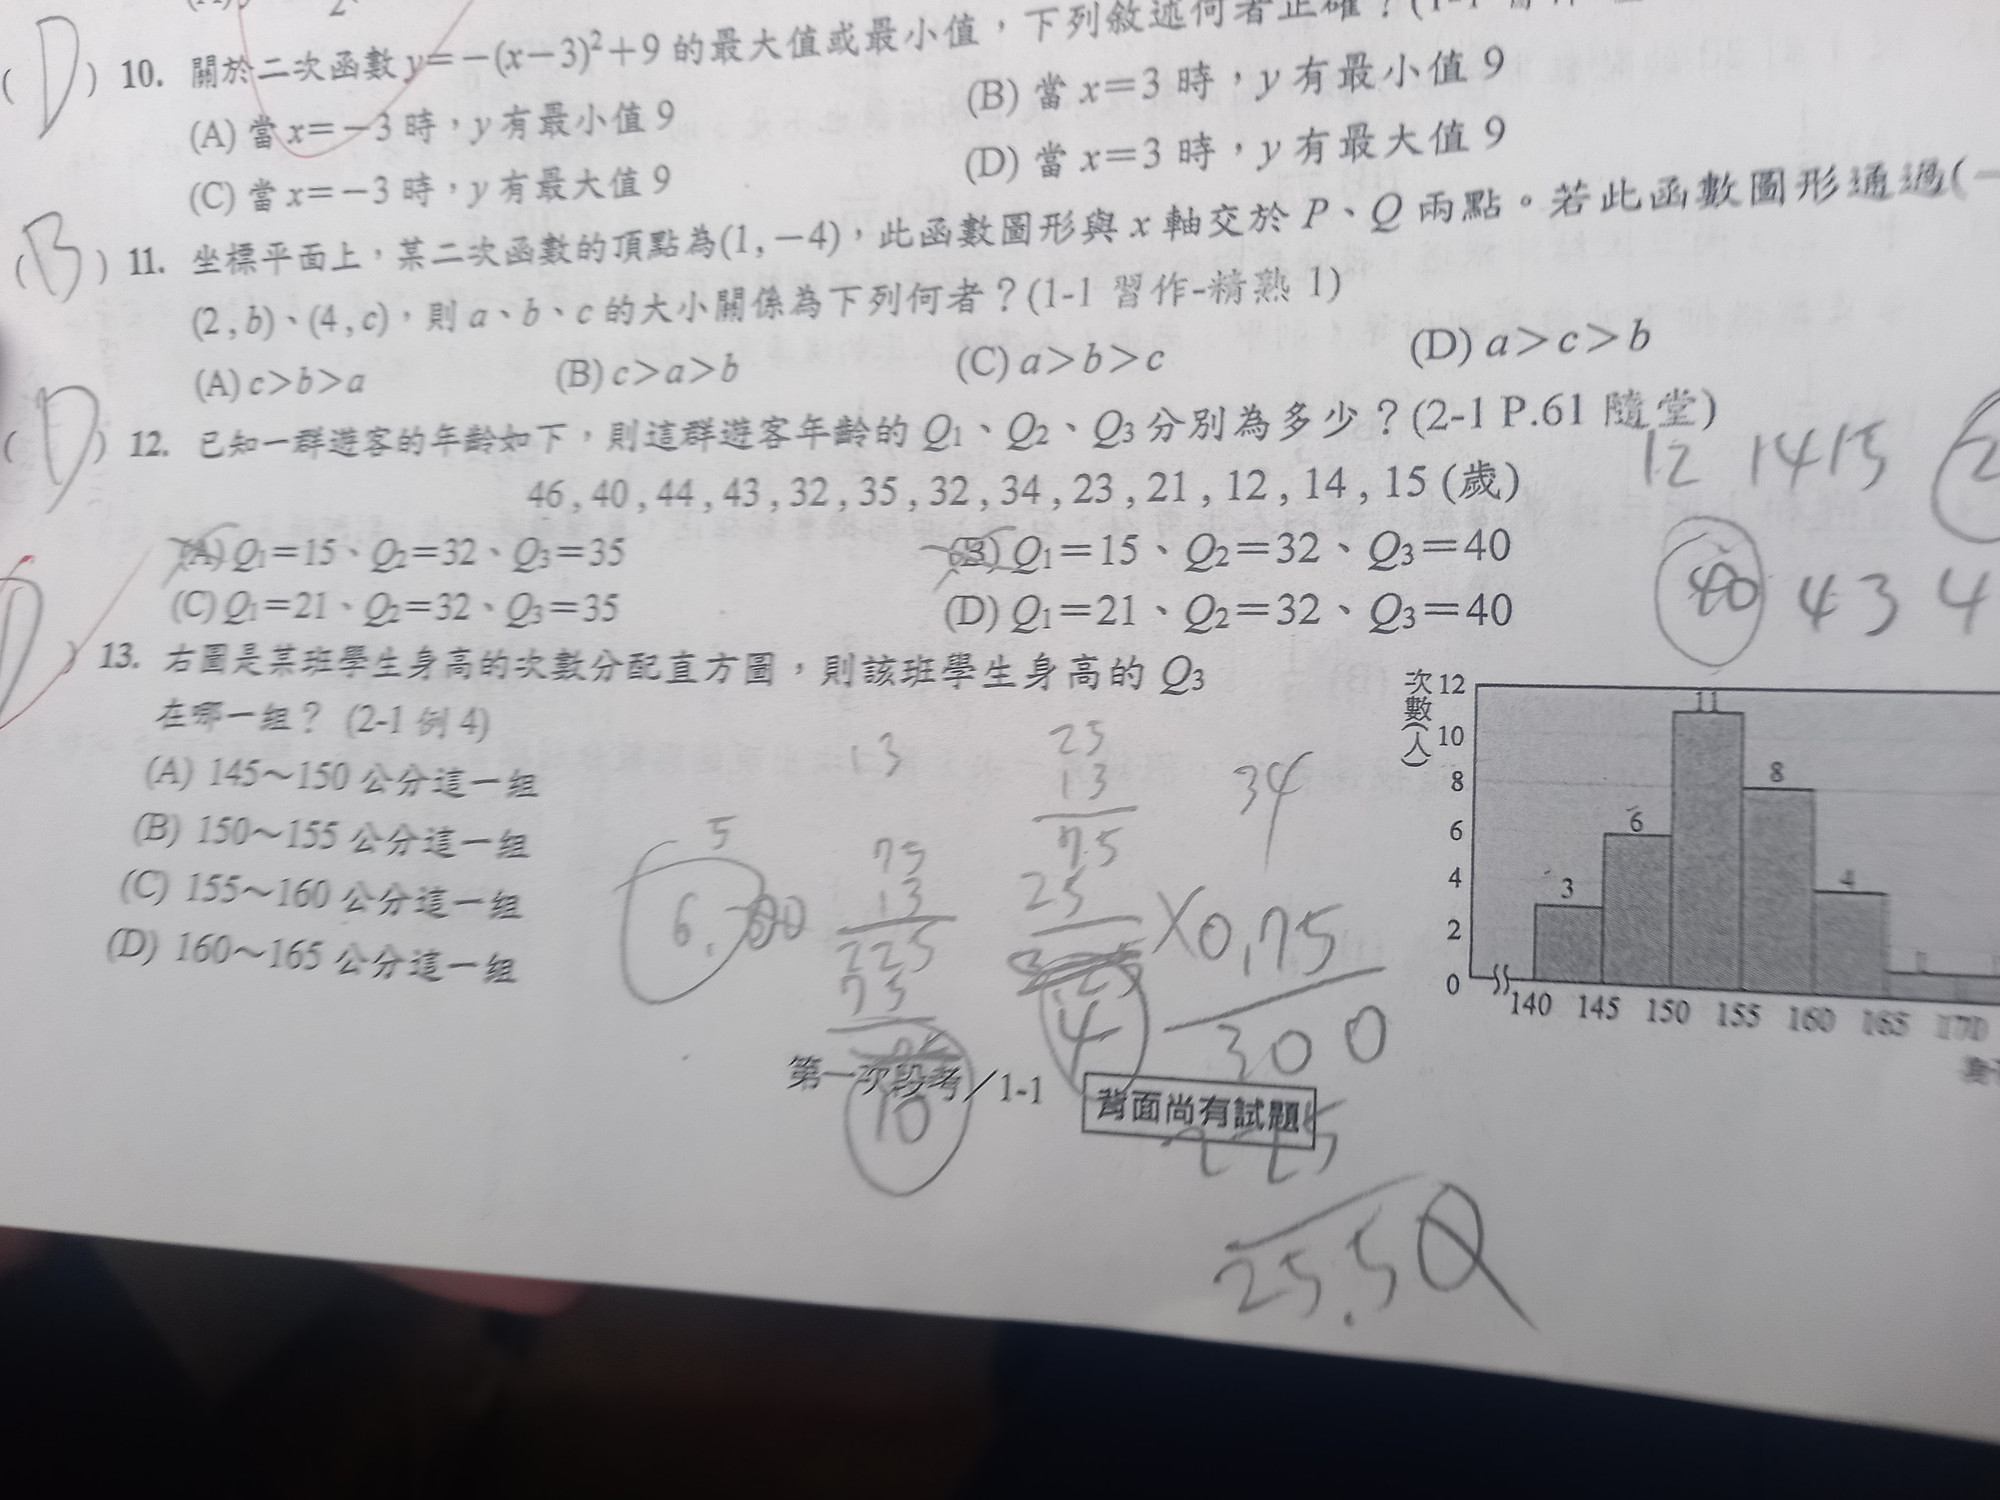 (D) 10. 關於二次函數 y=－(x－3)²+9 的最大值或最小值，下列敘述何者正確？(1-1
(A) 當 x=－3 時，y 有最小值 9 (B) 當 x=3 時，y 有最小值 9
(C) 當 x=－3 時，y 有最大值 9 (D) 當 x=3 時，y 有最大值 9
(B) 11. 坐標平面上，某二次函數的頂點為(1,－4)，此函數圖形與 x 軸交於 P、Q 兩點。若此函數圖形通過(－
(2,b)、(4,c)，則 a、b、c 的大小關係為下列何者？(1-1 習作-精熟 1)
(A) c>b>a (B) c>a>b (C) a>b>c (D) a>c>b
(D) 12. 已知一群遊客的年齡如下，則這群遊客年齡的 Q1、Q2、Q3 分別為多少？(2-1 P.61 隨堂)
12 14 15 2
46,40,44,43,32,35,32,34,23,21,12,14,15 (歲)
(A) Q1=15、Q2=32、Q3=35 (B) Q1=15、Q2=32、Q3=40
40 43 4
(C) Q1=21、Q2=32、Q3=35 (D) Q1=21、Q2=32、Q3=40
D ) 13. 右圖是某班學生身高的次數分配直方圖，則該班學生身高的 Q3
在哪一組？ (2-1 例 4)
(A) 145～150 公分這一組
(B) 150～155 公分這一組
(C) 155～160 公分這一組
(D) 160～165 公分這一組
次數(人)
12
10
8
6
4
2
0
3 6 11 8 4
140 145 150 155 160 165 170
身
13
25
13
75
25
4
34
×0.75
300
225
25.5
5
6.
75
13
225
75
10
第一次段考／1-1 背面尚有試題